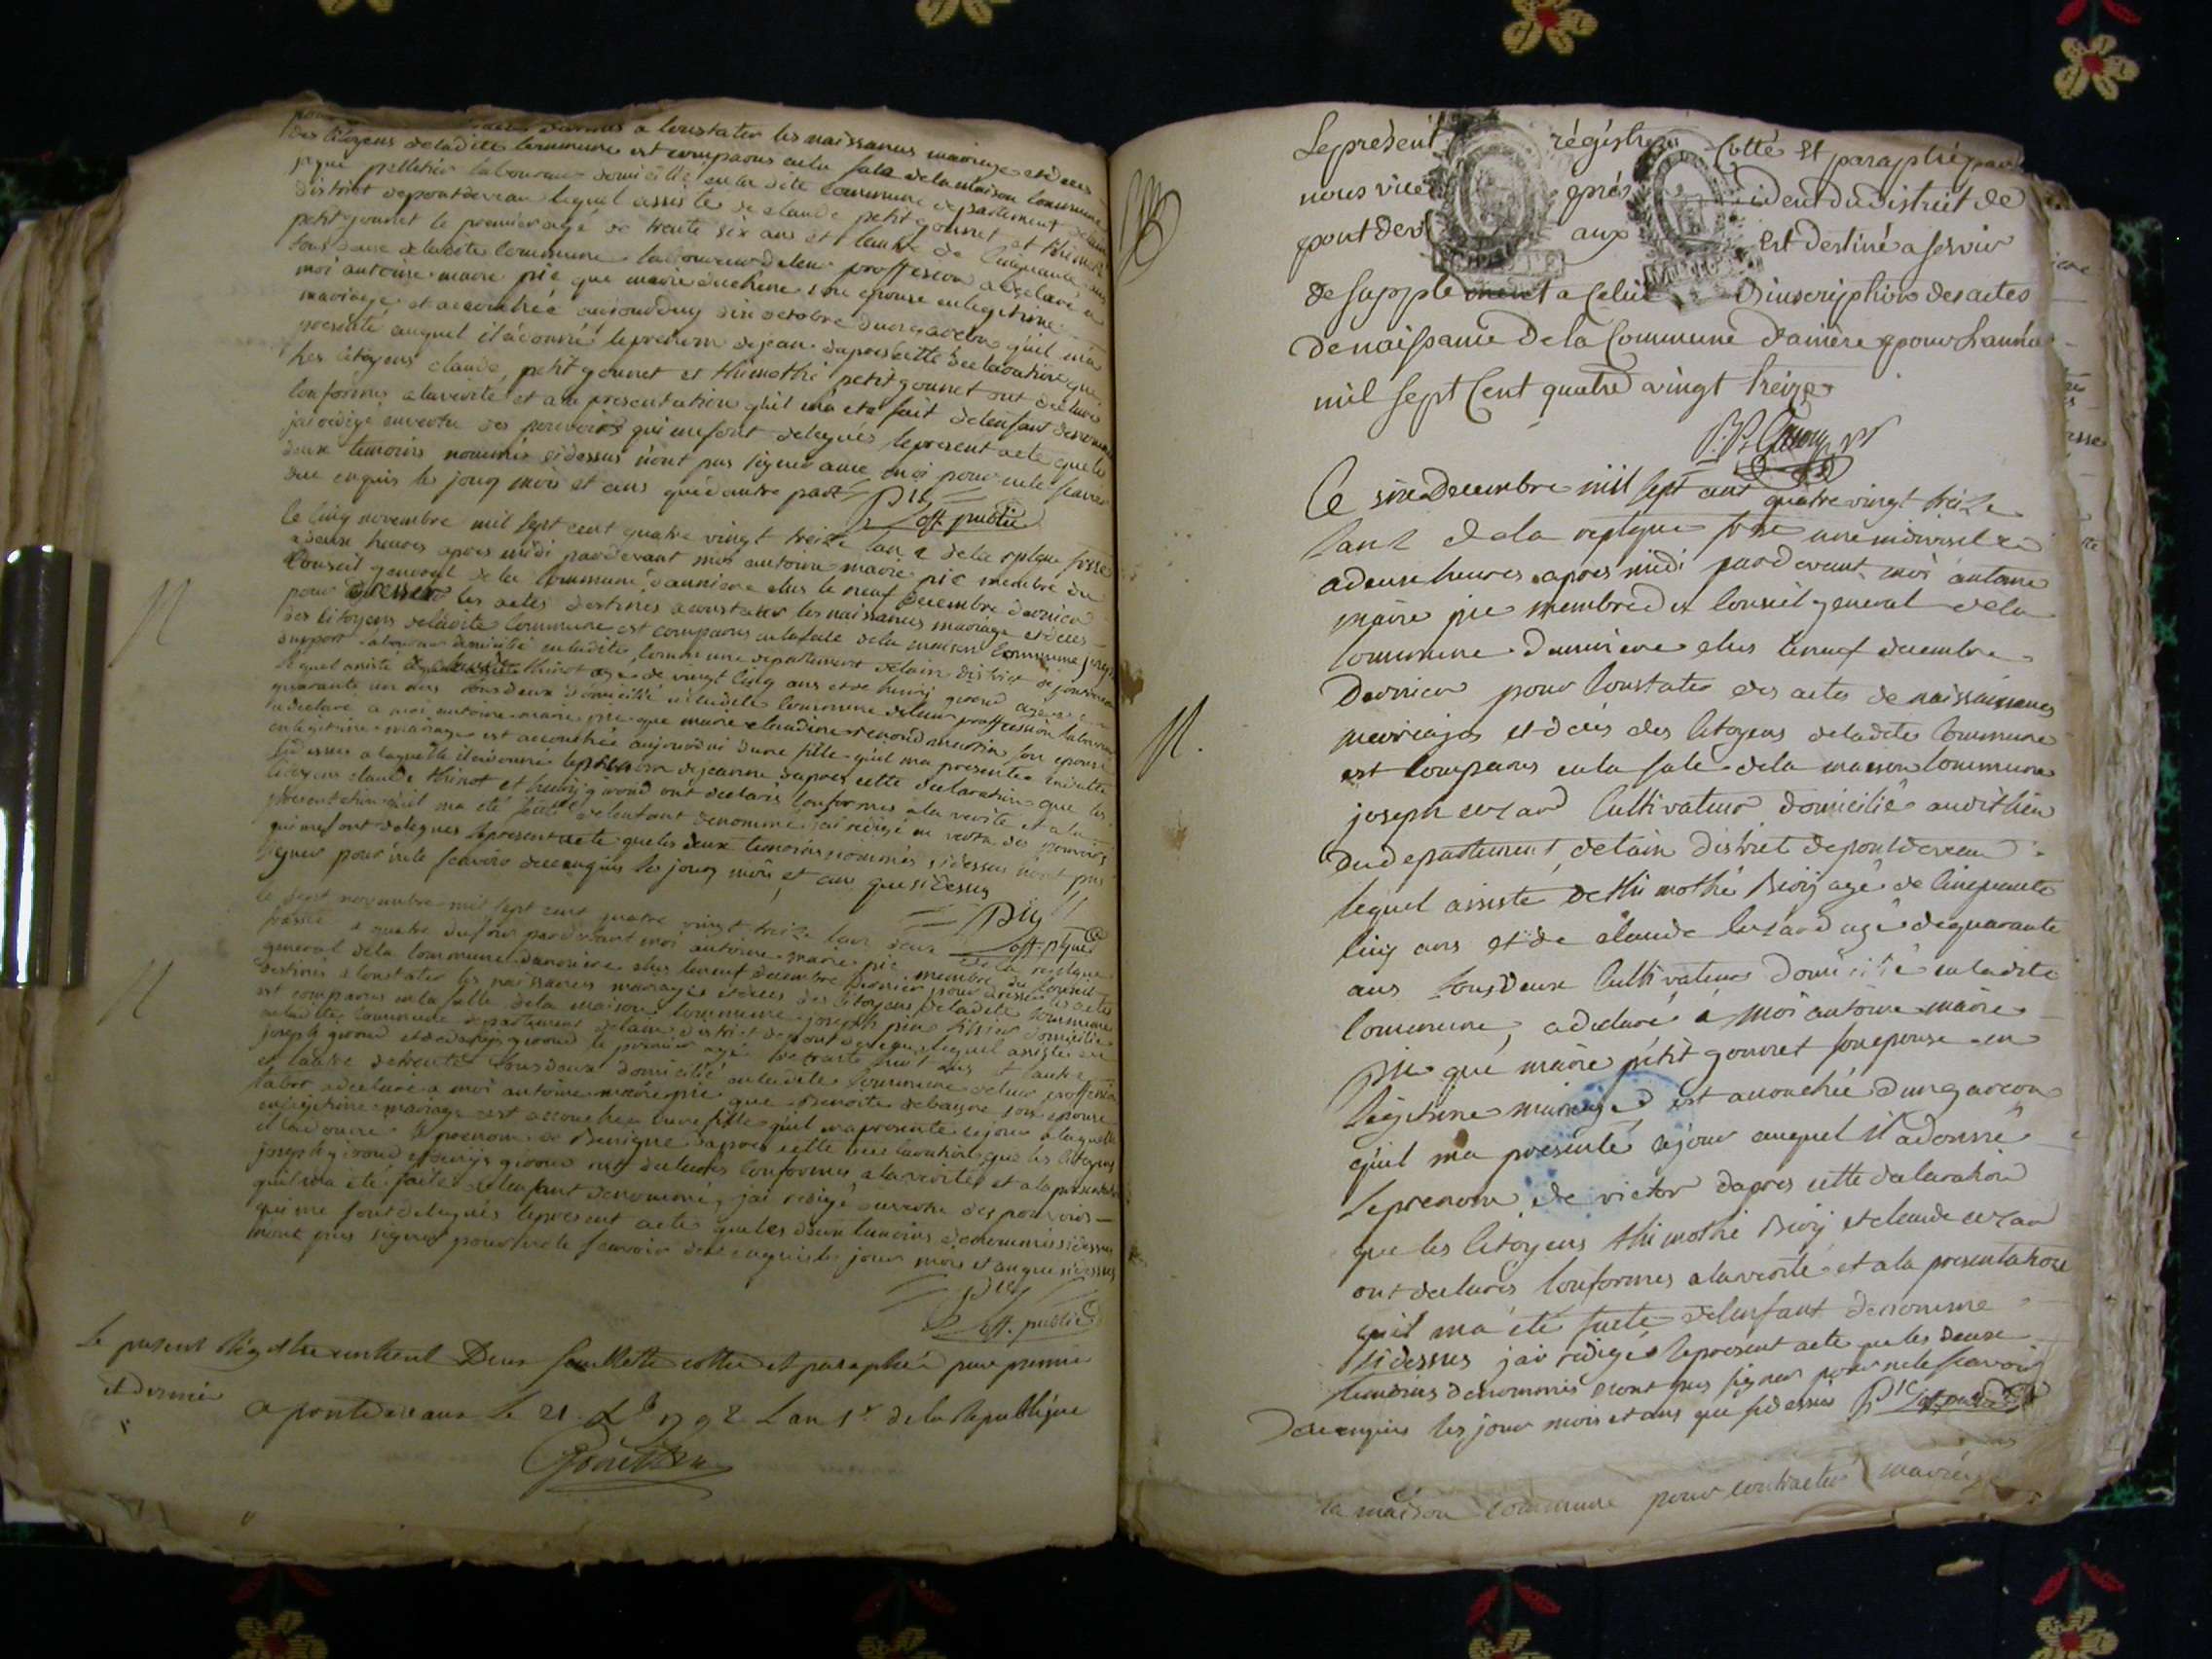 a Constater les naissances mariage et deces
des Citoyens de la dite Commune est comparus en la sale de la maison Commune
pelletier laboureur domicilié en la dite Commune departement
district de pontdevaux lequel assisté de claude petit gonnet et
petit gonnet le premier agé de trente six ans et lautre de Cinquante
tous deux de la dite Commune laboureur de leur proffession a declaré a
moi antoine marie pic que marie duchene son epouse en legitime
mariage est accouchée aujourdhuy dix octobre dun garcon quil m'a
presenté auquel il a donné le prenom de jean dapres cette declaration que
les Citoyens claude petit gonnet et thimothé petit gonnet ont declaré
Conforme a la verité et a la presentation quil m'a eté fait de lenfant denommé
jai redigé en vertu des pouvoirs qui me sont delegués le present acte que les
deux temoins nommés cidessus nont pas signer avec moi pour ne le scavoir
de ce enquis les jour mois et ans que dautre part Pic
off. public
le Cinq novembre mil sept cent quatre vingt treize lan 2 de la
a deux heures apres midi pardevant moi antoine marie pic membre du
Conseil general de la Commune danniere elus le neuf decembre dernier
pour dresser les actes destinés a constater les naissances mariage et deces
des Citoyens de la dite Commune est comparus en la sale de la maison Commune
laboureur domicilié en ladite Commune departement de lain district de pontdevaux
lequel assisté de claude thinot agé de vingt Cinq ans et de henry giroud agé de
quarante un ans tous deux domicilié en la dite Commune de leur proffession laboureur
a declaré a moi antoine marie pic que marie claudine son epouse
en legitime mariage est accouchée aujourdhui dune fille quil ma presentée
a laquelle il a donné le prenom de jeanne dapres cette declaration que les
Citoyens claude thinot et henry giroud ont declarés Conformes a la verité et a la
presentation quil ma eté faite de lenfant denommé jai redigé en vertu des pouvoirs
qui me sont delegues le present acte que les deux temoins nommés cidessus nont pas
signer pour ne le scavoir de ce enquis les jour mois et ans que cidessus
Pic
off. pque
le sept novembre mil sept cent quatre vingt treize lan deux de la
a quatre du soir pardevant moi antoine marie pic membre du Conseil
general de la Commune danniere elus le neuf decembre dernier pour dresser les actes
destinés a Constater les naissances mariages et deces des Citoyens de la dite Commune
est comparus en la salle de la maison Commune joseph domicilié
en la dite Commune departement de lain district de pontdevaux lequel assisté de
joseph giroud et de giroud le premier agé de trente huit ans et lautre
et lautre de trente tous deux domicilié en la dite Commune de leur proffession
a declaré a moi antoine marie pic que Benoite son epouse
en legitime mariage est accouchée dune fille quil ma presenté ce jour a laquelle
il a donné le prenom de Benigne dapres cette declaration que les Citoyens
joseph giroud et giroud ont declarés Conformes a la verité et a la presentation
quil ma été faite de lenfant denommé, jai redigé en vertu des pouvoirs
qui me sont delegués le present acte que les deux temoins denommés cidessus
nont pas signer pour ne le scavoir de ce enquis les jour mois et an que cidessus
Pic
off. public
le present Registre contient Deux feuillets cottés et paraphés par premier
et dernier
a pontdevaux le 21. 1792 Lan 1er de la Republique
Le present régistre Cotté Et paraphé par
nous vice président du district de
pont devaux Est destiné a servir
de supplement a Celui d'inscription des actes
de naissance de la Commune d'anière pour l'année
mil sept Cent quatre vingt treize
Ce six decembre mil sept cent quatre vingt treize
Lan 2 de la une indivisible
a deux heures apres midi pardevant moi antoine
marie pic membre du Conseil general de la
Commune danniere elus le neuf decembre
Dernier pour Constater des actes de naissances
mariages et deces des Citoyens de la dite Commune
est Comparus en la sale de la maison Commune
joseph Cultivateur domicilié audit lieu
du departement de lain district de pontdevaux
lequel assisté de thimothé Buoij agé de Cinquante
Cinq ans et de claude agé de quarante
ans tous deux Cultivateur domicilié en ladite
Commune, a declaré a moi antoine marie
pic que marie petit gonnet son epouse en
légitime mariage est accouchée dun garcon
qu'il ma presenté ce jour auquel il a donné
le prenom de victor dapres cette declaration
que les Citoyens thimothé Buoij et claude
ont declarés Conformes a la verité et a la presentation
qu'il ma été faite de lenfant denommé
cidessus jai redigé le present acte que les deux
temoins denommés nont pas signer pour ne le scavoir
de ce enquis les jour mois et ans que cidessus Pic off. public
la maison commune pour contracter mariage